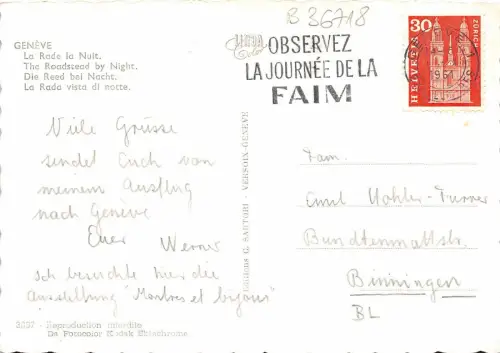 B 36718
GENÈVE
La Rade la Nuit.
The Roadstead by Night.
Die Reed bei Nacht.
La Rada vista di notte.
OBSERVEZ
LA JOURNÉE DE LA
FAIM
30
ZÜRICH
HELVETIA
Viele Grüsse
sendet Euch von
meinem Ausflug
nach Genève
Euer Werner
Ich besuchte hier die
Ausstellung "Montres et bijoux"
Fam.
Emil Mohler-Furrer
Bundtenmattstr.
Binningen
BL
Editions G. SARTORI - VERSOIX-GENÈVE
Reproduction interdite
De Fotocolor Kodak Ektachrome.